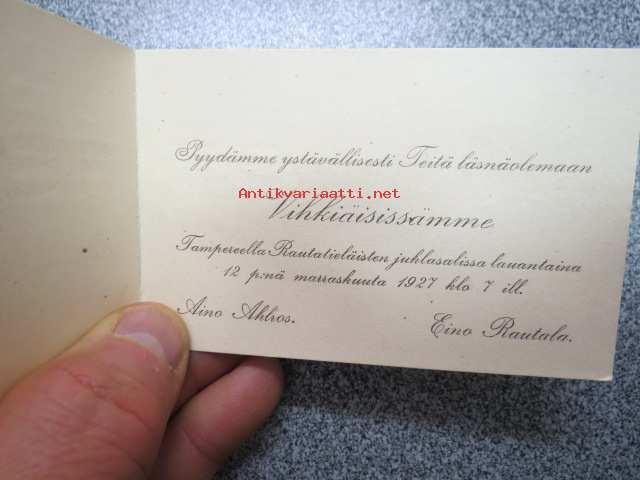 Pyydämme ystävällisesti Teitä läsnäolemaan
Antikvariaatti.net
Vihkiäisissämme
Tampereella Rautatieläisten juhlasalissa lauantaina
12 p:nä marraskuuta 1927 klo 7 ill.
Aino Ahlros. Eino Rautala.